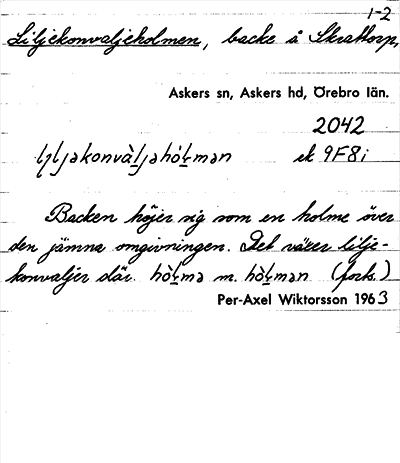 1-2
Liljekonvaljeholmen, backe å Skrattorp,
Askers sn, Askers hd, Örebro län.
2042
ek 9F8i
Backen höjer sig som en holme över
den jämna omgivningen. Det växer lilje-
konvaljer där. hòɫmə m. hòɫmən (forts.)
Per-Axel Wiktorsson 1963